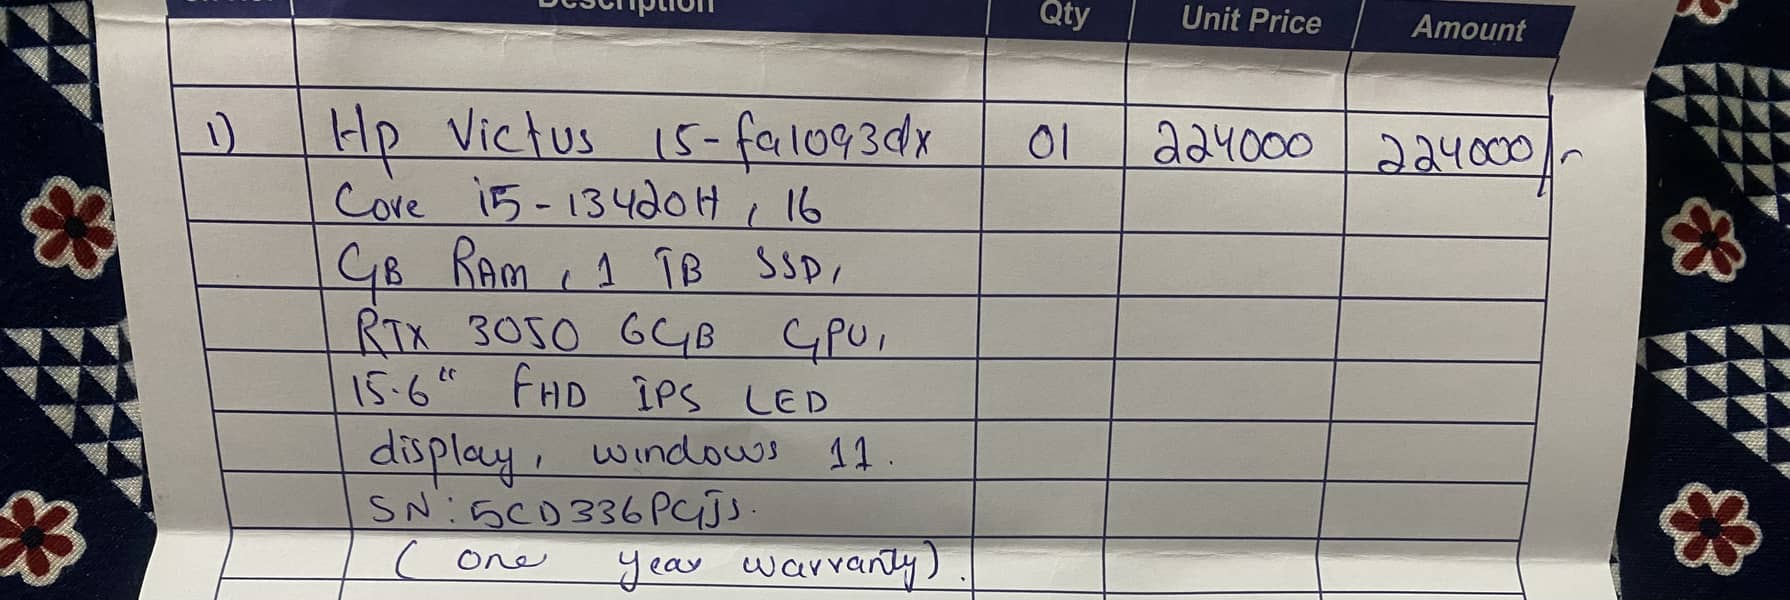 Description Qty Unit Price Amount
1) Hp Victus 15-fa1093dx 01 224000 224000/-
Core i5-13420H, 16
GB RAM, 1 TB SSD,
RTX 3050 6GB GPU,
15.6" FHD IPS LED
display, windows 11.
SN: 5CD336PGJS.
(one year warranty).